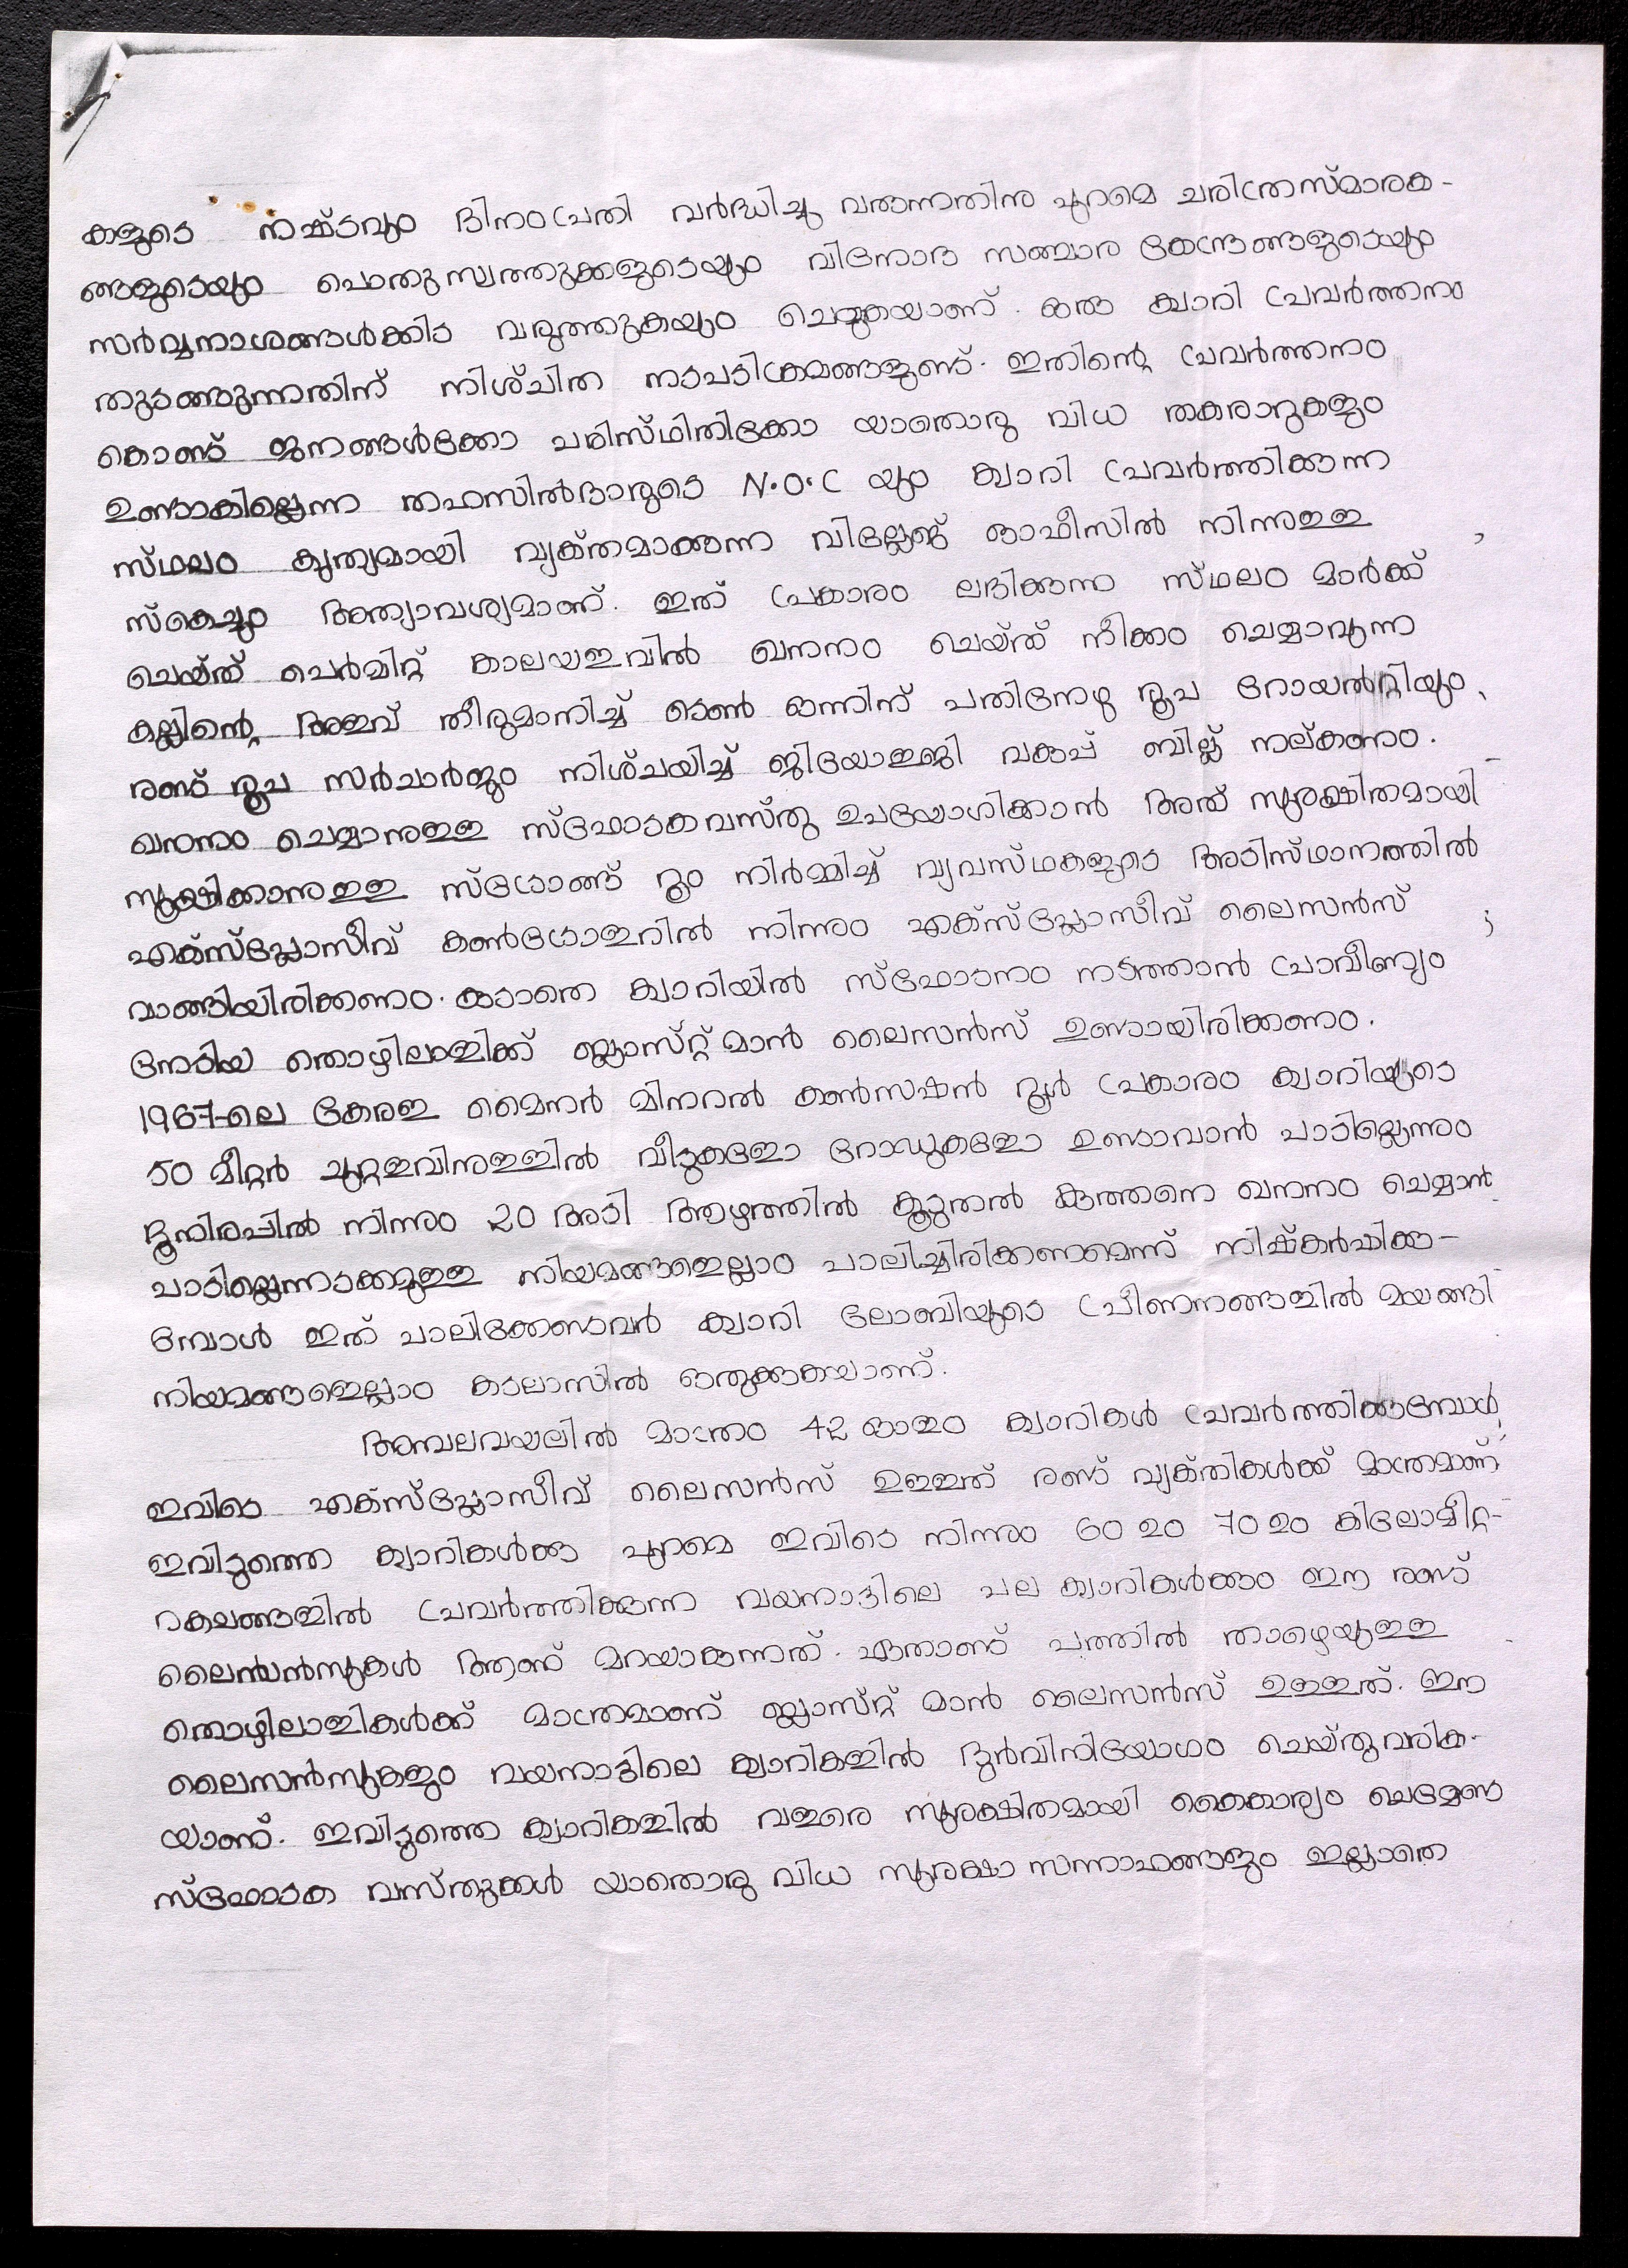 കളുടെ നഷ്ടവും ദിനംപ്രതി വർദ്ധിച്ചു വരുന്നതിനു പുറമെ ചരിത്രസ്മാരക-
ങ്ങളുടെയും പൊതുസ്വത്തുക്കളുടെയും വിനോദ സഞ്ചാര കേന്ദ്രങ്ങളുടെയും
സർവ്വനാശങ്ങൾക്കിട വരുത്തുകയും ചെയ്യുകയാണ്. ഒരു ക്വാറി പ്രവർത്തനം
തുടങ്ങുന്നതിന് നിശ്ചിത നടപടിക്രമങ്ങളുണ്ട്. ഇതിന്റെ പ്രവർത്തനം
കൊണ്ട് ജനങ്ങൾക്കോ പരിസ്ഥിതിക്കോ യാതൊരു വിധ തകരാറുകളും
ഉണ്ടാകില്ലെന്ന തഹസിൽദാരുടെ N.O.C യും ക്വാറി പ്രവർത്തിക്കുന്ന
സ്ഥലം കൃത്യമായി വ്യക്തമാക്കുന്ന വില്ലേജ് ഓഫീസിൽ നിന്നുള്ള
സ്കെച്ചും അത്യാവശ്യമാണ്. ഇത് പ്രകാരം ലഭിക്കുന്ന സ്ഥലം മാർക്ക്
ചെയ്ത് പെർമിറ്റ് കാലയളവിൽ ഖനനം ചെയ്ത് നീക്കം ചെയ്യാവുന്ന
കല്ലിന്റെ അളവ് തീരുമാനിച്ച് ടൺ ഒന്നിന് പതിനേഴു രൂപ റോയൽറ്റിയും
രണ്ട് രൂപ സർചാർജും നിശ്ചയിച്ച് ജിയോളജി വകുപ്പ് ബില്ല് നല്കണം.
ഖനനം ചെയ്യാനുള്ള സ്ഫോടകവസ്തു ഉപയോഗിക്കാൻ അത് സുരക്ഷിതമായി
സൂക്ഷിക്കാനുള്ള സ്ട്രോങ്ങ് റൂം നിർമ്മിച്ച് വ്യവസ്ഥകളുടെ അടിസ്ഥാനത്തിൽ
എക്സ്പ്ലോസീവ് കൺട്രോളറിൽ നിന്നും എക്സ്പ്ലോസീവ് ലൈസൻസ്
വാങ്ങിയിരിക്കണം. കൂടാതെ ക്വാറിയിൽ സ്ഫോടനം നടത്താൻ പ്രാവീണ്യം
നേടിയ തൊഴിലാളിക്ക് ബ്ലാസ്റ്റ് മാൻ ലൈസൻസ് ഉണ്ടായിരിക്കണം.
1967-ലെ കേരള മൈനർ മിനറൽ കൺസഷൻ റൂൾ പ്രകാരം ക്വാറിയുടെ
50 മീറ്റർ ചുറ്റളവിനുള്ളിൽ വീടുകളോ റോഡുകളോ ഉണ്ടാവാൻ പാടില്ലെന്നും
ഭൂനിരപ്പിൽ നിന്നും 20 അടി ആഴത്തിൽ കൂടുതൽ കുത്തനെ ഖനനം ചെയ്യാൻ
പാടില്ലെന്നടക്കമുള്ള നിയമങ്ങളെല്ലാം പാലിച്ചിരിക്കണമെന്ന് നിഷ്കർഷിക്കു-
മ്പോൾ ഇത് പാലിക്കേണ്ടവർ ക്വാറി ലോബിയുടെ പ്രീണനങ്ങളിൽ മയങ്ങി
നിയമങ്ങളെല്ലാം കടലാസിൽ ഒതുക്കുകയാണ്.
അമ്പലവയലിൽ മാത്രം 42 ഓളം ക്വാറികൾ പ്രവർത്തിക്കുമ്പോൾ,
ഇവിടെ എക്സ്പ്ലോസീവ് ലൈസൻസ് ഉള്ളത് രണ്ട് വ്യക്തികൾക്ക് മാത്രമാണ്.
ഇവിടുത്തെ ക്വാറികൾക്കു പുറമെ ഇവിടെ നിന്നും 60 ഉം 70 ഉം കിലോമീറ്റ-
റകലങ്ങളിൽ പ്രവർത്തിക്കുന്ന വയനാട്ടിലെ പല ക്വാറികൾക്കും ഈ രണ്ട്
ലൈസൻസുകൾ ആണ് മറയാകുന്നത്. ഏതാണ്ട് പത്തിൽ താഴെയുള്ള
തൊഴിലാളികൾക്ക് മാത്രമാണ് ബ്ലാസ്റ്റ് മാൻ ലൈസൻസ് ഉള്ളത്. ഈ
ലൈസൻസുകളും വയനാട്ടിലെ ക്വാറികളിൽ ദുർവിനിയോഗം ചെയ്തുവരിക-
യാണ്. ഇവിടുത്തെ ക്വാറികളിൽ വളരെ സുരക്ഷിതമായി കൈകാര്യം ചെയ്യേണ്ട
സ്ഫോടക വസ്തുക്കൾ യാതൊരു വിധ സുരക്ഷാ സന്നാഹങ്ങളും ഇല്ലാതെ